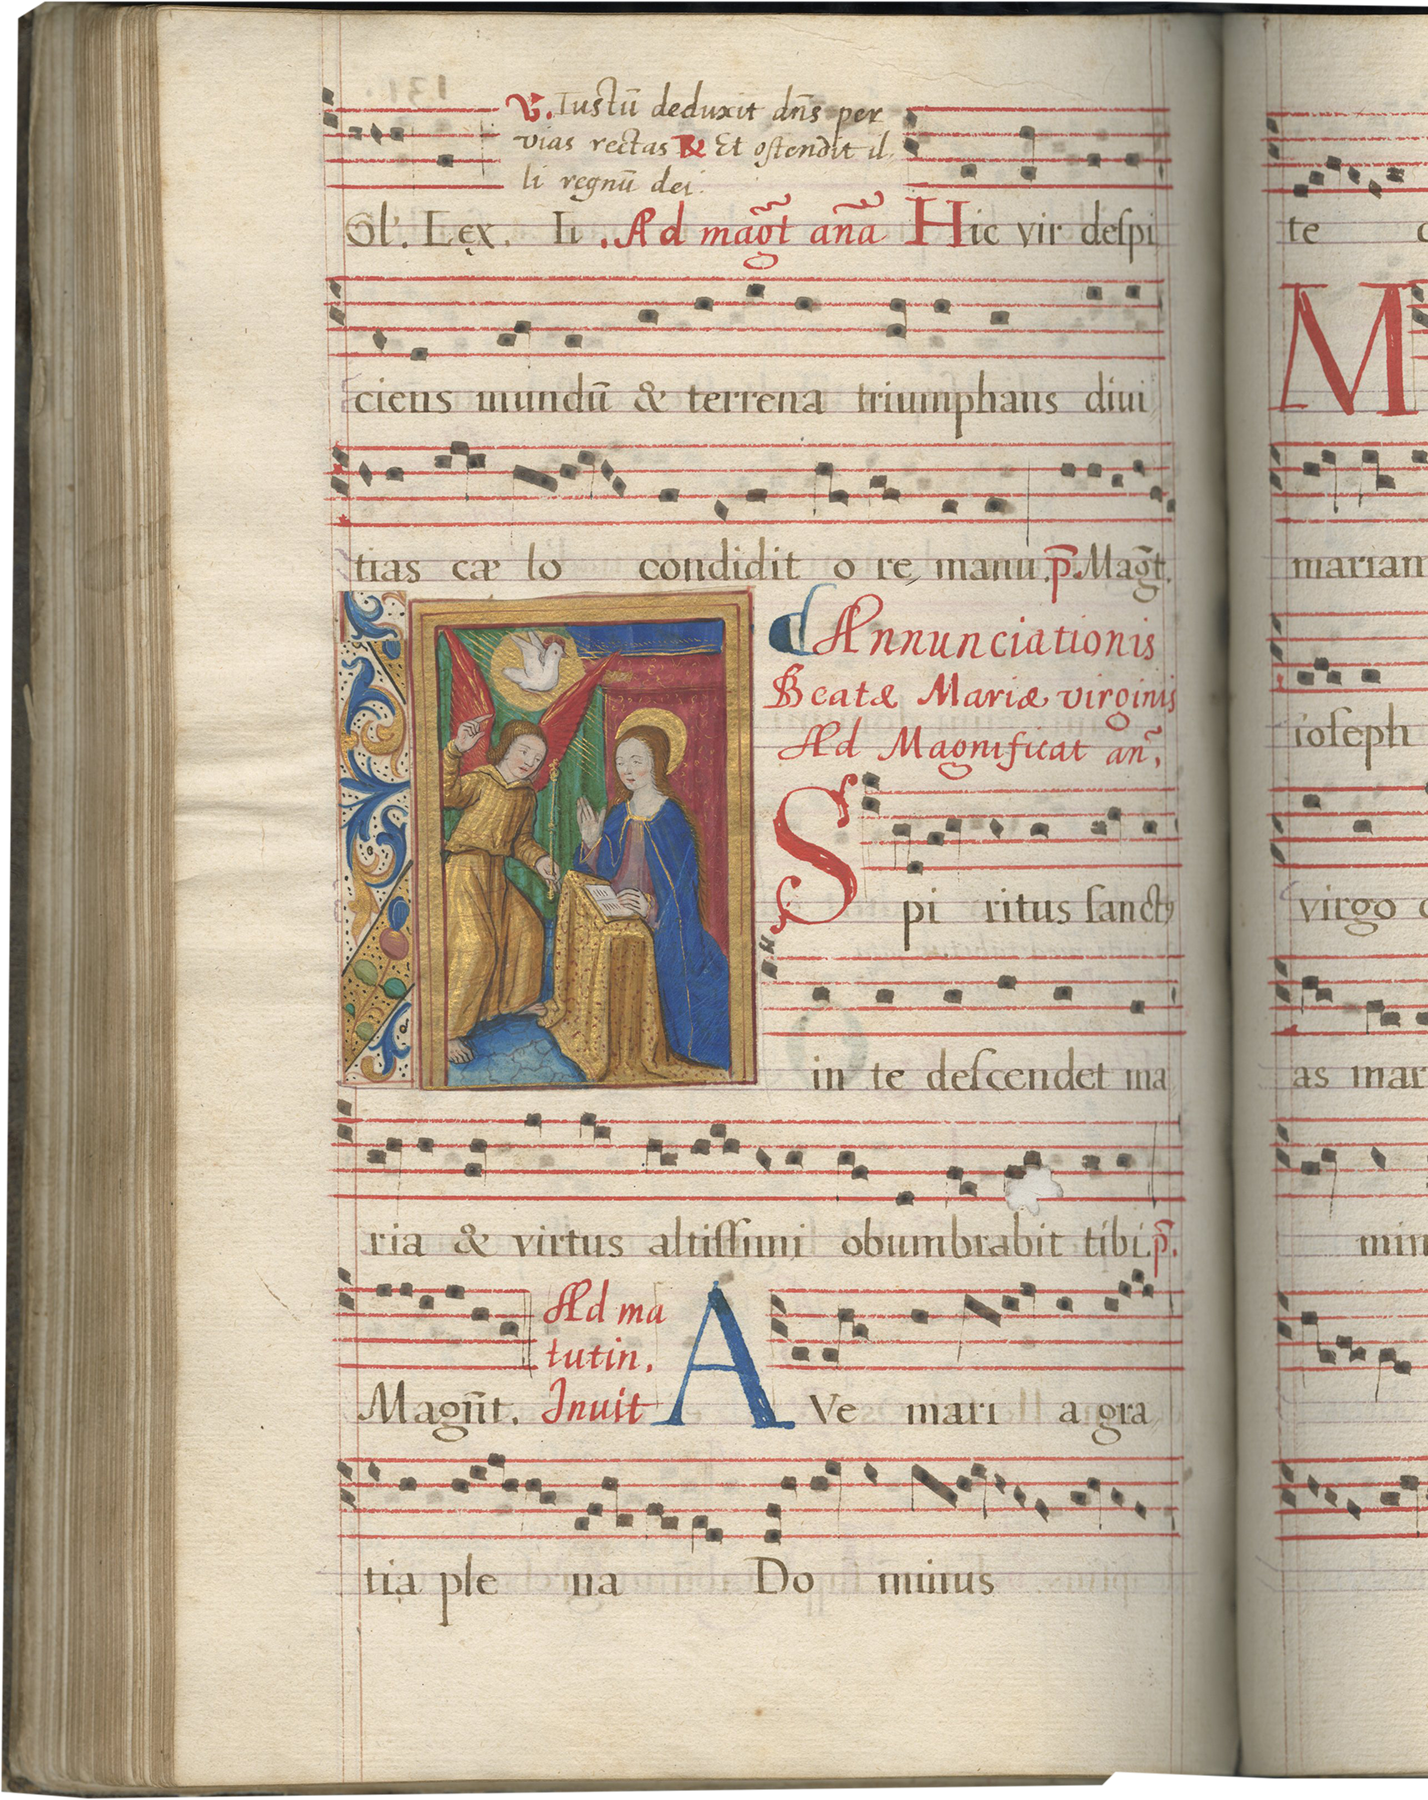 ℣. Iustū deduxit dn̄s per
vias rectas ℟ Et ostendit il
li regnū dei.
Ol'. Lex. Ii. Ad mag̃t anã Hic vir despi
ciens mundū & terrena triumphans diui
tias cæ lo condidit o re, manu. p̄. Mag̃t.
Annunciationis
Beatæ Mariæ virginis
Ad Magnificat añ.
Spi ritus sanctꝰ
in te descendet ma
ria & virtus altissimi obumbrabit tibi. p̄.
Magñt. Ad ma
tutin.
Inuit AVe mari a gra
tia ple na Do minus
te
M
mariam
ioseph
virgo
as mar
min